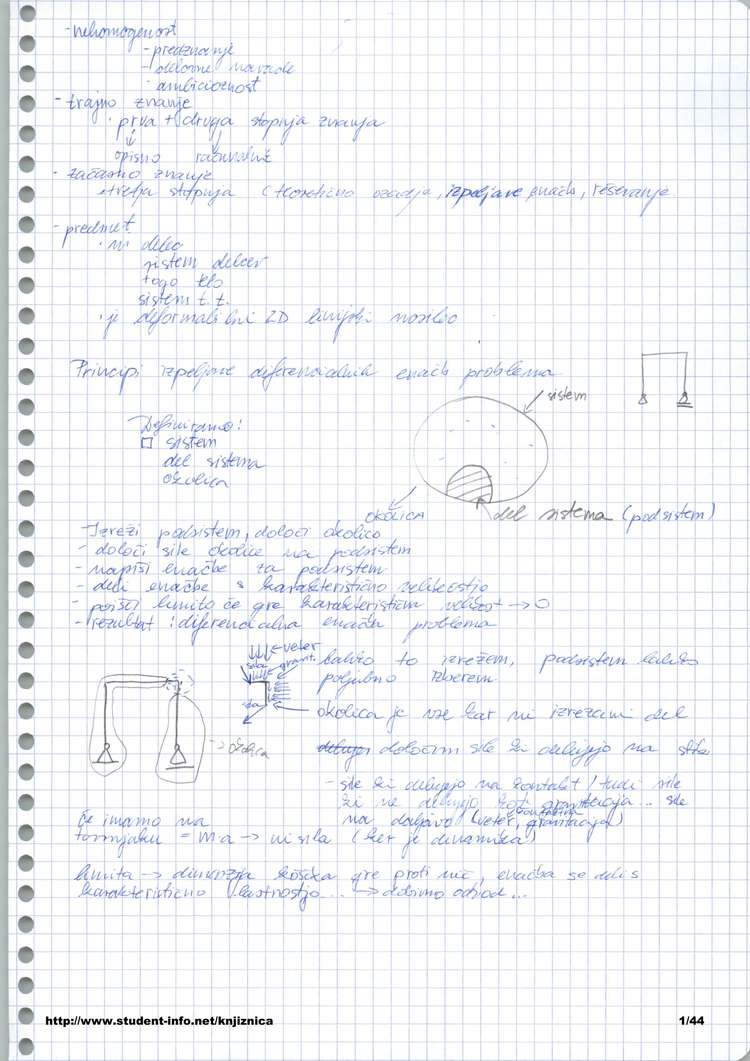 - nehomogenost
- predznanje
- delovne navade
- ambicioznost
- trajno znanje
• prva + druga stopnja znanja
opisno računalniš
• začasno znanje
• tretja stopnja (teoretično ozadje, izpeljave enačb, reševanje
- predmet
• ni delec
sistem delcev
togo telo
sistem t.t.
• je deformabilni 2D linijski nosilec
Principi izpeljave diferencialnih enačb problema
sistem
Definiramo:
□ sistem
del sistema
okolica
OKOLICA
del sistema (podsistem)
- Izreži podsistem, določi okolico
- določi sile okolice na podsistem
- napiši enačbe za podsistem
- deli enačbe s karakteristično velikostjo
- poišči limito če gre karakterističn velikost → 0
- rezultat: diferencialna enačba problema
veter
sila gravit.
kakšno to izrežem, podsistem lahko
poljubno izberem
sila
okolica je vse kar ni izrezani del
→ okolica
določim sile ki delujejo na
- sile ki delujejo na kontakt / tudi sile
ki ne delujejo kot gravitacija... sile
na daljavo (veter, gravitacija)
kontaktna
Če imamo na
tornjaku = m·a → ni sila (ker je dinamika)
limita → dimenzija koščka gre proti nič, enačba se deli s
karakteristično lastnostjo... → dobimo odvod...
http://www.student-info.net/knjiznica
1/44